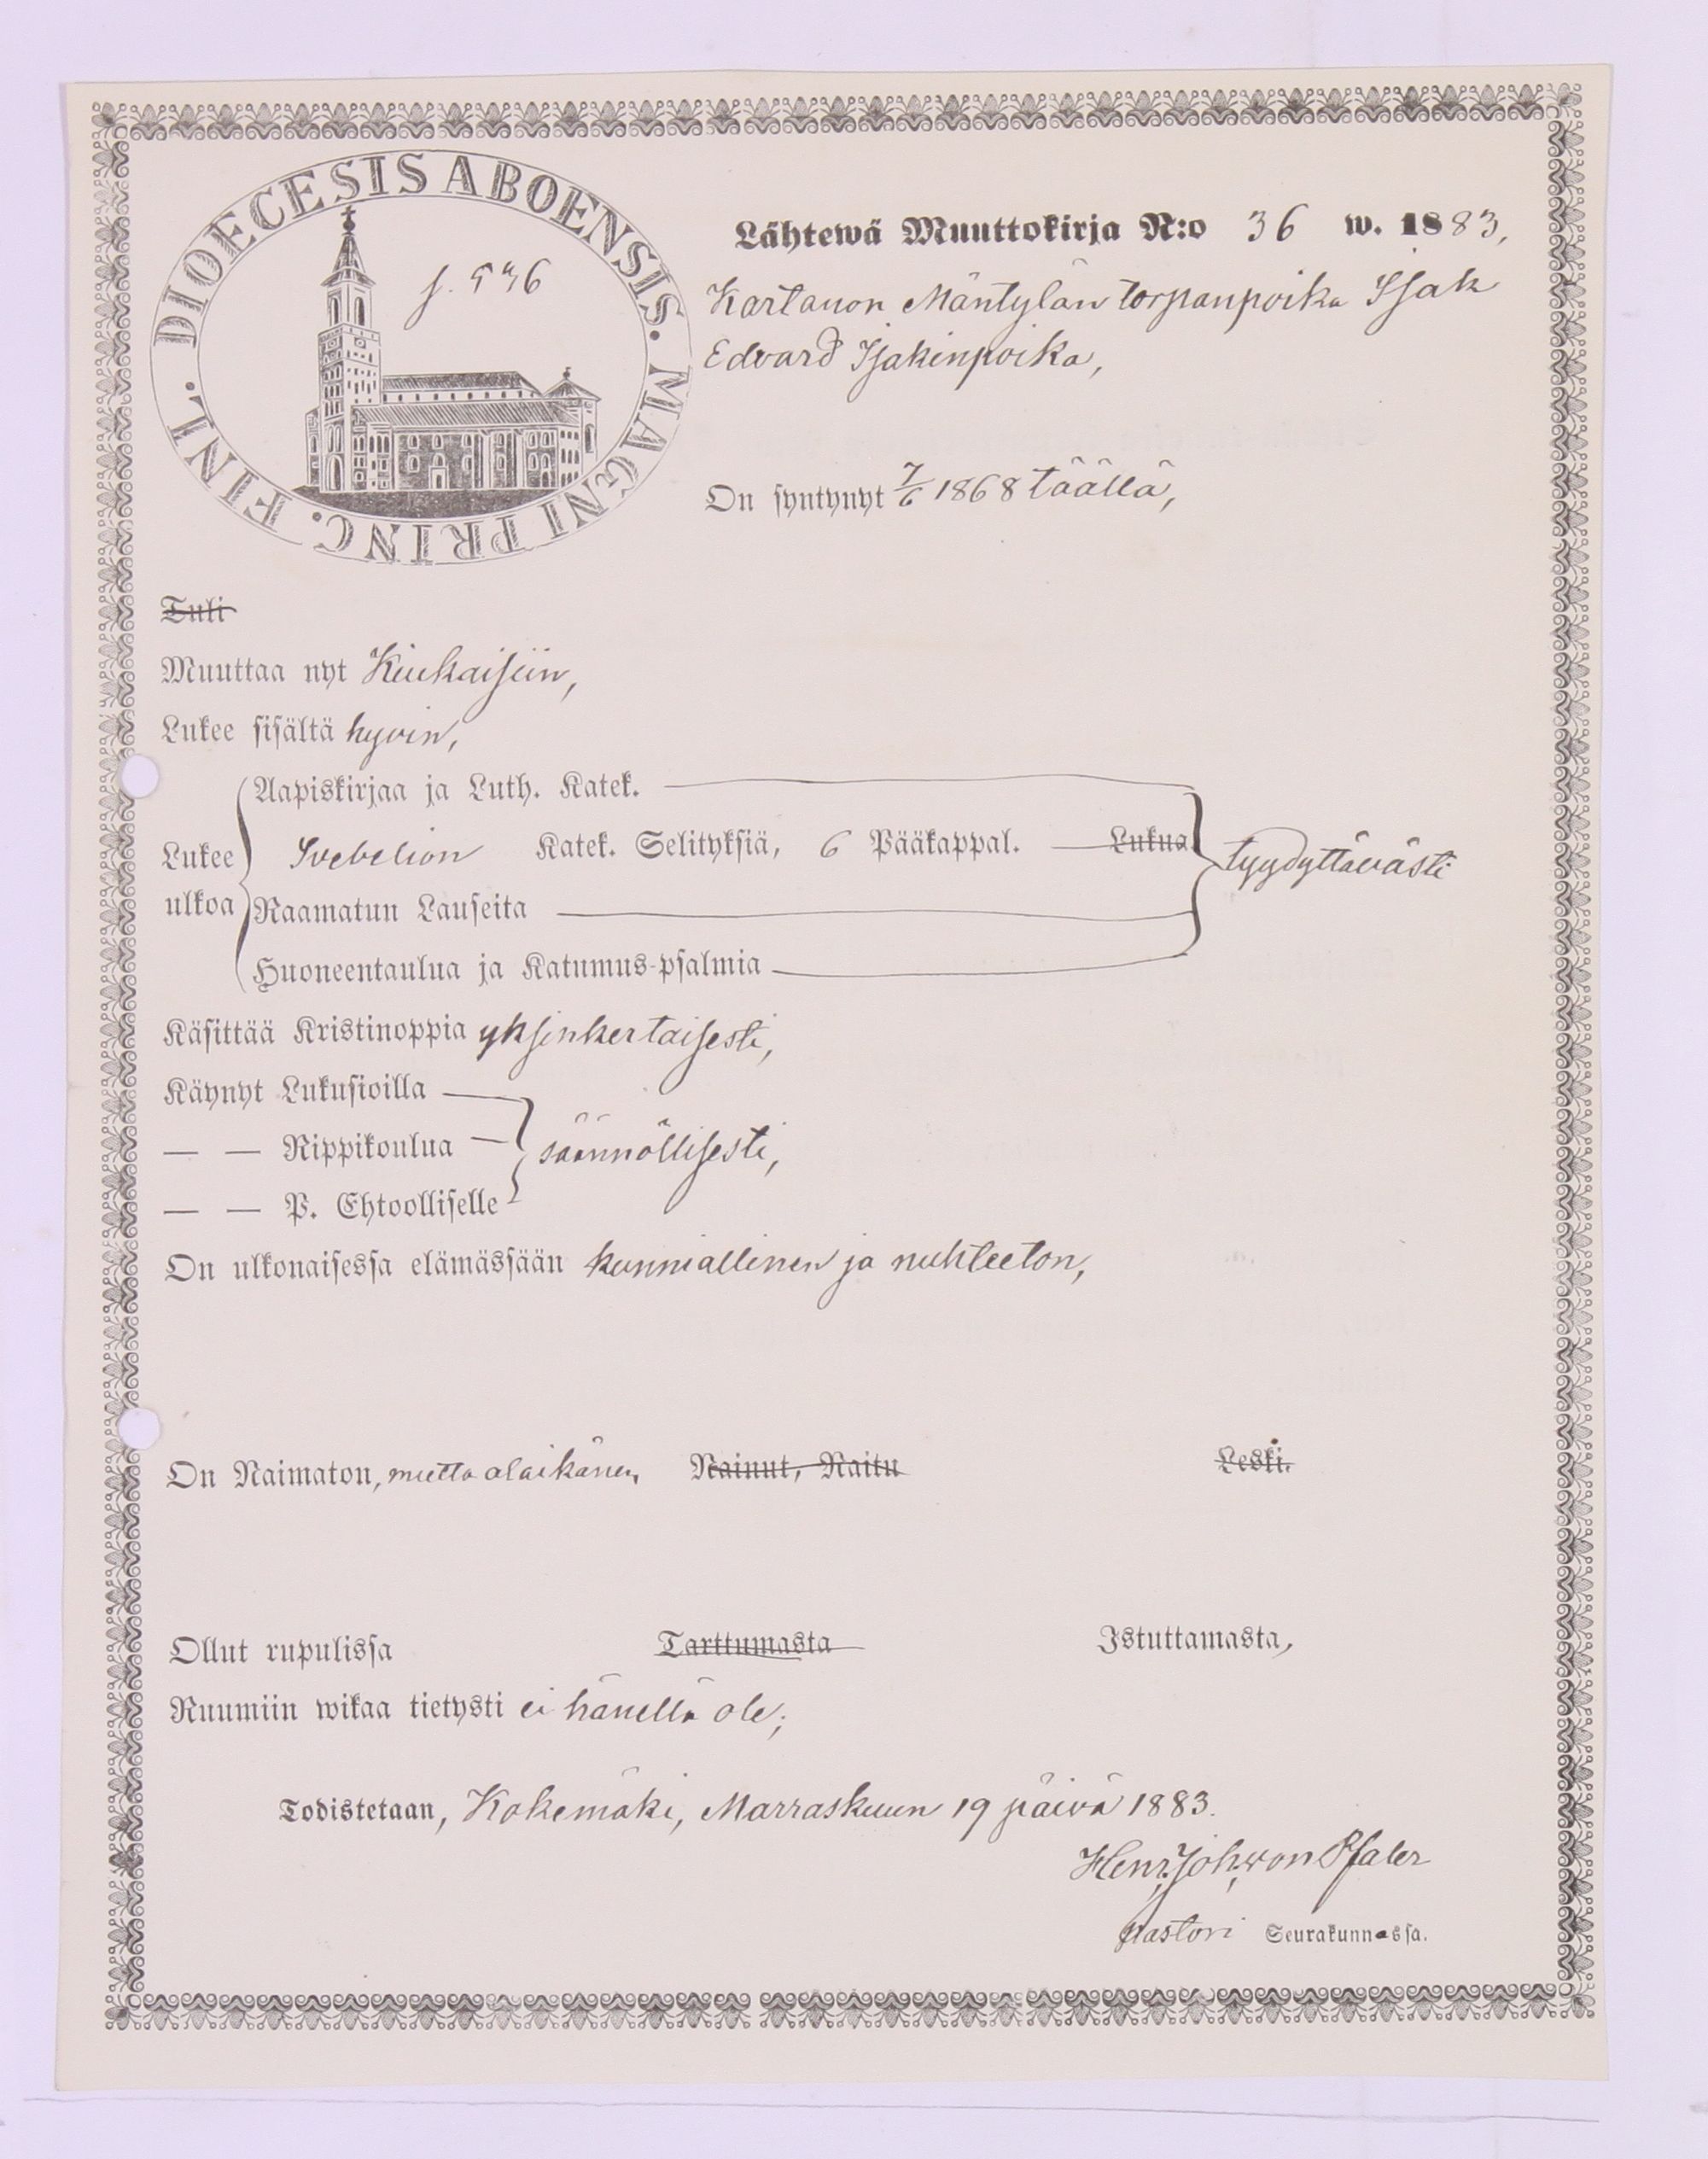 DIOECESIS ABOENSIS. MAGNI PRINC. FINL.
Lähtewä Muuttokirja N:o 36 w. 1883,
Kartanon Mäntylän torpanpoika Isak
Edvard Isakinpoika,
On syntynyt 7/6 1868 täällä,
Tuli
Muuttaa nyt Kiukaisiin,
Lukee sisältä hyvin,
Aapiskirjaa ja Luth. Katek.
Lukee ulkoa
Svebelion Katek. Selityksiä, 6 Pääkappal. Lukua. tyydyttävästi
Raamatun Lauseita
Huoneentaulua ja Katumus-psalmia
Käsittää Kristinoppia yksinkertaisesti,
Käynyt Lukusioilla
— — Rippikoulua säännöllisesti,
— — P. Ehtoolliselle
On ulkonaisessa elämässään kunniallinen ja nuhteeton,
On Naimaton, mutta alaikänen, Nainut, Naitu Leski.
Ollut rupulissa Tarttumasta Istuttamasta,
Ruumiin wikaa tietysti ei hänellä ole;
Todistetaan, Kokemäki, Marraskuun 19 päivä 1883.
Henr. Joh. von Pfaler
pastori Seurakunnassa.